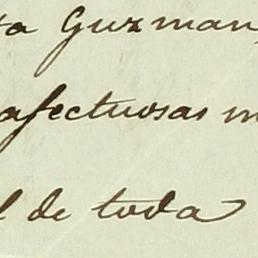 ta Guzman,
afectuosas m
l de toda